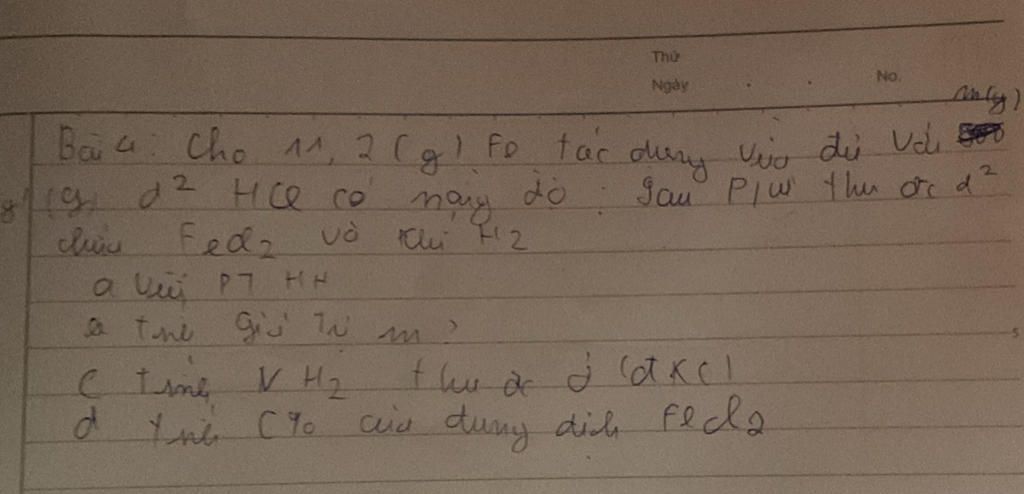 Thứ
Ngày . . No.
m(g)
Bài 4: Cho 11,2 (g) Fe tác dụng vừa đủ với
(g) d² HCl có nồng độ. Sau P/ư thu đc d²
chứa FeCl2 và khí H2
a viết PT HH
tính giá trị m?
C tính V H2 thu đc ở (đKC)
d tính C% của dung dịch FeCl2